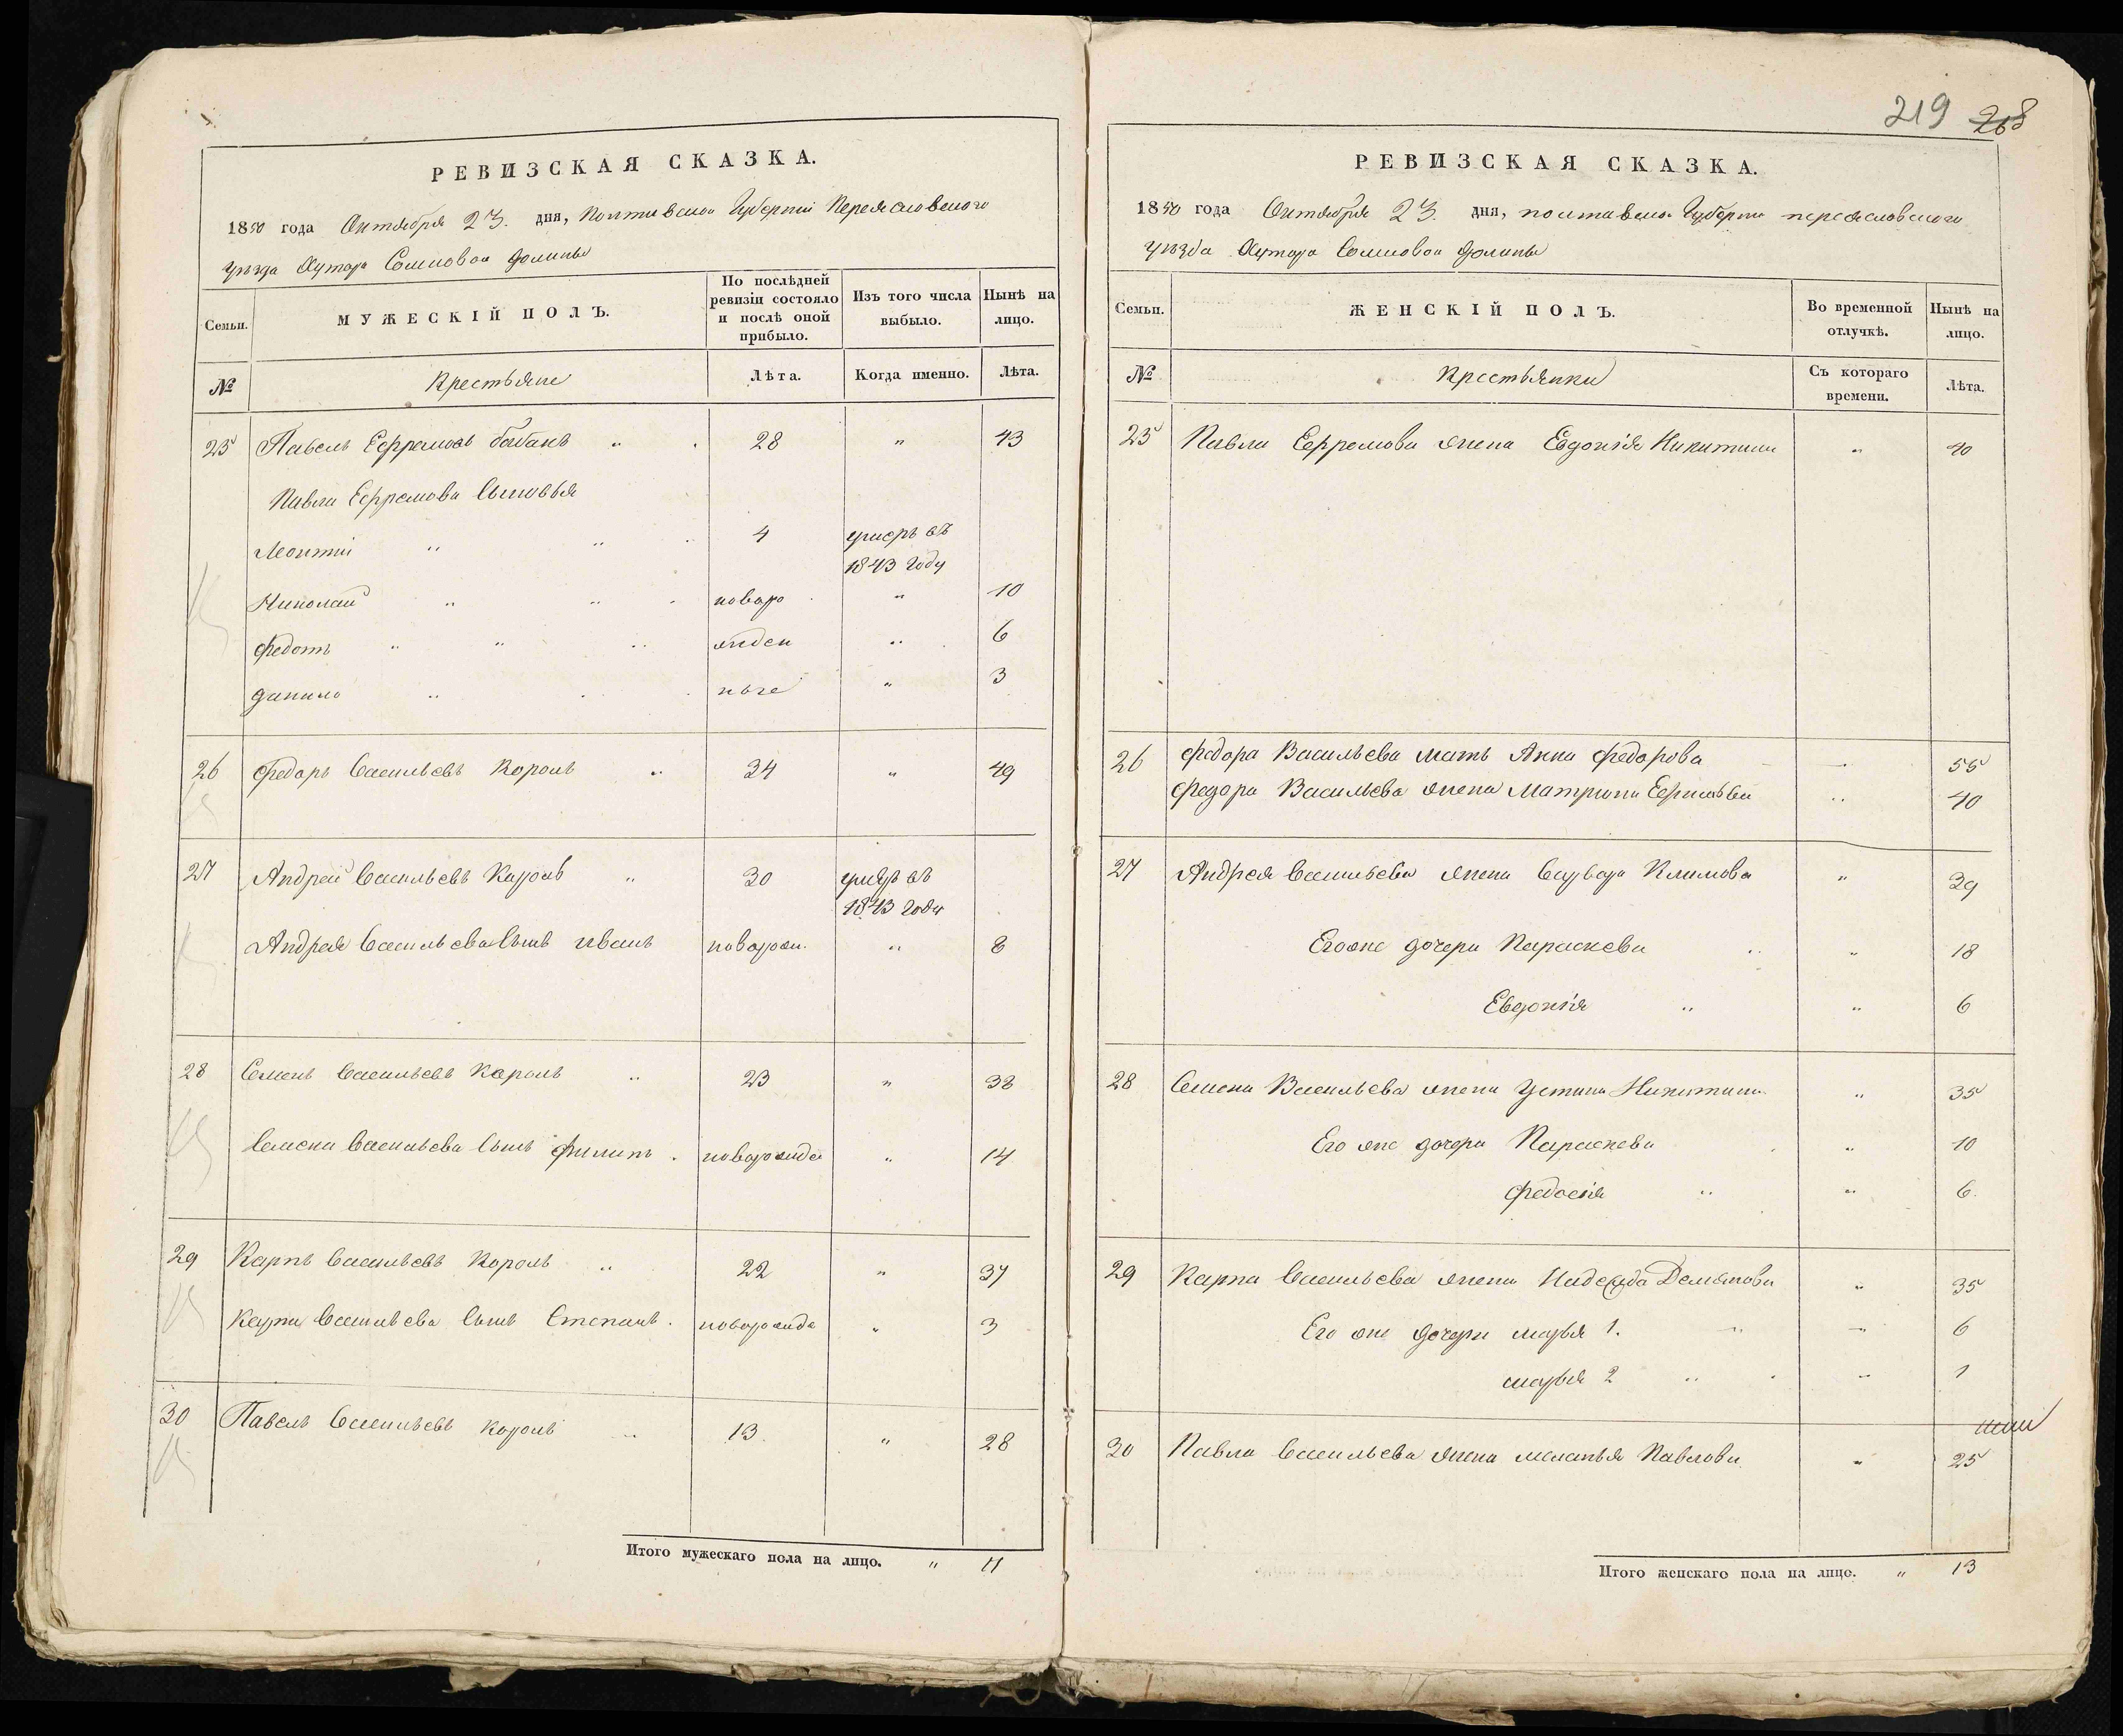 219 268
РЕВИЗСКАЯ СКАЗКА.
1850 года Октября 23. дня, Полтавской Губернии Переяславского
уезда Хутора Сомковой долины
Семьи.
МУЖЕСКІЙ ПОЛЪ.
По послѣдней ревизіи состояло и послѣ оной прибыло.
Изъ того числа выбыло.
Нынѣ на лицо.
№
Крестьяне
Лѣта.
Когда именно.
Лѣта.
25 Павелъ Ефремовъ 28 " 43
Павла Ефремова сыновья
Леонтій " " 4 умеръ въ
1843 году
Николай " " новоро " 10
Федотъ " " жден " 6
данило " ные " 3
26 Федоръ Васильевъ Король " 34 " 49
27 Андрей Васильевъ Король " 30 умеръ въ
1843 году
Андрея Васильева сынъ иванъ новорож. " 8
28 Семенъ Васильевъ Король " 23 " 38
Семена Васильева сынъ филипъ новорожде " 14
29 Карпъ Васильевъ Король " 22 " 37
Карпа Васильева сынъ Степанъ новорожде " 3
30 Павелъ Васильевъ король " 13 " 28
Итого мужескаго пола на лицо. " 11
РЕВИЗСКАЯ СКАЗКА.
1850 года Октября 23. дня, полтавской Губернии переяславского
уезда Хутора Сомковой долины
Семьи.
ЖЕНСКІЙ ПОЛЪ.
Во временной отлучкѣ.
Нынѣ на лицо.
№
Крестьянки
Съ котораго времени.
Лѣта.
25 Павла Ефремова жена Евдокія Никитина " 40
26 Федора Васильева мать Анна Федорова " 55
Федора Васильева жена Матрона " 40
27 Андрея Васильева жена Варвара Климова " 39
Его же дочери Параскева " " 18
Евдокія " " 6
28 Семена Васильева жена Устина Никитина " 35
Его же дочери Параскева " 10
Федосія " " 6.
29 Карпа Васильева жена Надежда Демянова " 35
Его же дочери марья 1. " " 6
марья 2 " " 1
30 Павла Васильева жена меланья Павлова " 25
Итого женскаго пола на лицо. " 13